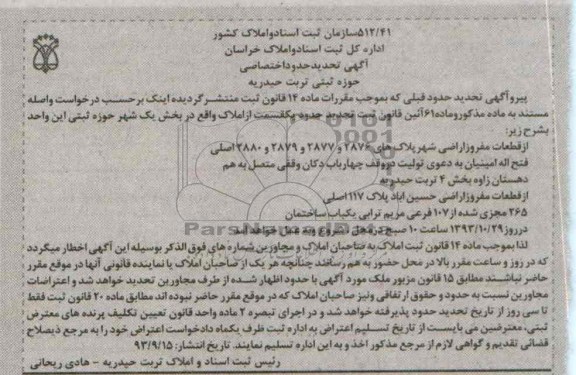 ۵۱۲/۴۱سازمان ثبت اسنادواملاک کشور
اداره کل ثبت اسنادواملاک خراسان
آگهی تحدیدحدوداختصاصی
حوزه ثبتی تربت حیدریه
پیروآگهی تحدید حدود قبلی که بموجب مقررات ماده ۱۴ قانون ثبت منتشرگردیده اینک برحسب درخواست واصله
مستند به ماده مذکوروماده۶۱آئین قانون ثبت تحدید حدود یکقسمت ازاملاک واقع در بخش یک شهر حوزه ثبتی این واحد
بشرح زیر:
ازقطعات مفروزاراضی شهرپلاک های ۲۸۷۶ و ۲۸۷۷ و ۲۸۷۹ و ۲۸۸۰ اصلی
فتح اله امینیان به دعوی تولیت دروقف چهارباب دکان وقفی متصل به هم
دهستان زاوه بخش ۴ تربت حیدریه
ازقطعات مفروزاراضی حسین اباد پلاک ۱۱۷ اصلی
۲۶۵ مجزی شده از۱۰۷ فرعی مریم ترابی یکباب ساختمان
درروز ۱۳۹۳/۱۰/۲۹ ساعت ۱۰ صبح درمحل شروع وبه عمل خواهدآمد
لذا بموجب ماده ۱۴ قانون ثبت املاک به صاحبان املاک و مجاورین شماره های فوق الذکر بوسیله این آگهی اخطار میگردد
که در روز و ساعت مقرر بالا در محل حضور به هم رسانند چنانچه هر یک از صاحبان املاک یا نماینده قانونی آنها در موقع مقرر
حاضر نباشند مطابق ۱۵ قانون مزبور ملک مورد آگهی با حدود اظهار شده از طرف مجاورین تحدید خواهد شد و اعتراضات
مجاورین نسبت به حدود و حقوق ارتفاقی ونیز صاحبان املاک که در موقع مقرر حاضر نبوده اند مطابق ماده ۲۰ قانون ثبت فقط
تا سی روز از تاریخ تحدید حدود پذیرفته خواهد شد و در اجرای تبصره ۲ ماده واحد قانون تعیین تکلیف پرنده های معترض
ثبتی، معترضین می بایست از تاریخ تسلیم اعتراض به اداره ثبت ظرف یکماه دادخواست اعتراض خود را به مرجع ذیصلاح
قضائی تقدیم و گواهی لازم از مرجع مذکور اخذ و به این اداره تسلیم نمایند. تاریخ انتشار: ۹۳/۹/۱۵
رئیس ثبت اسناد و املاک تربت حیدریه - هادی ریحانی